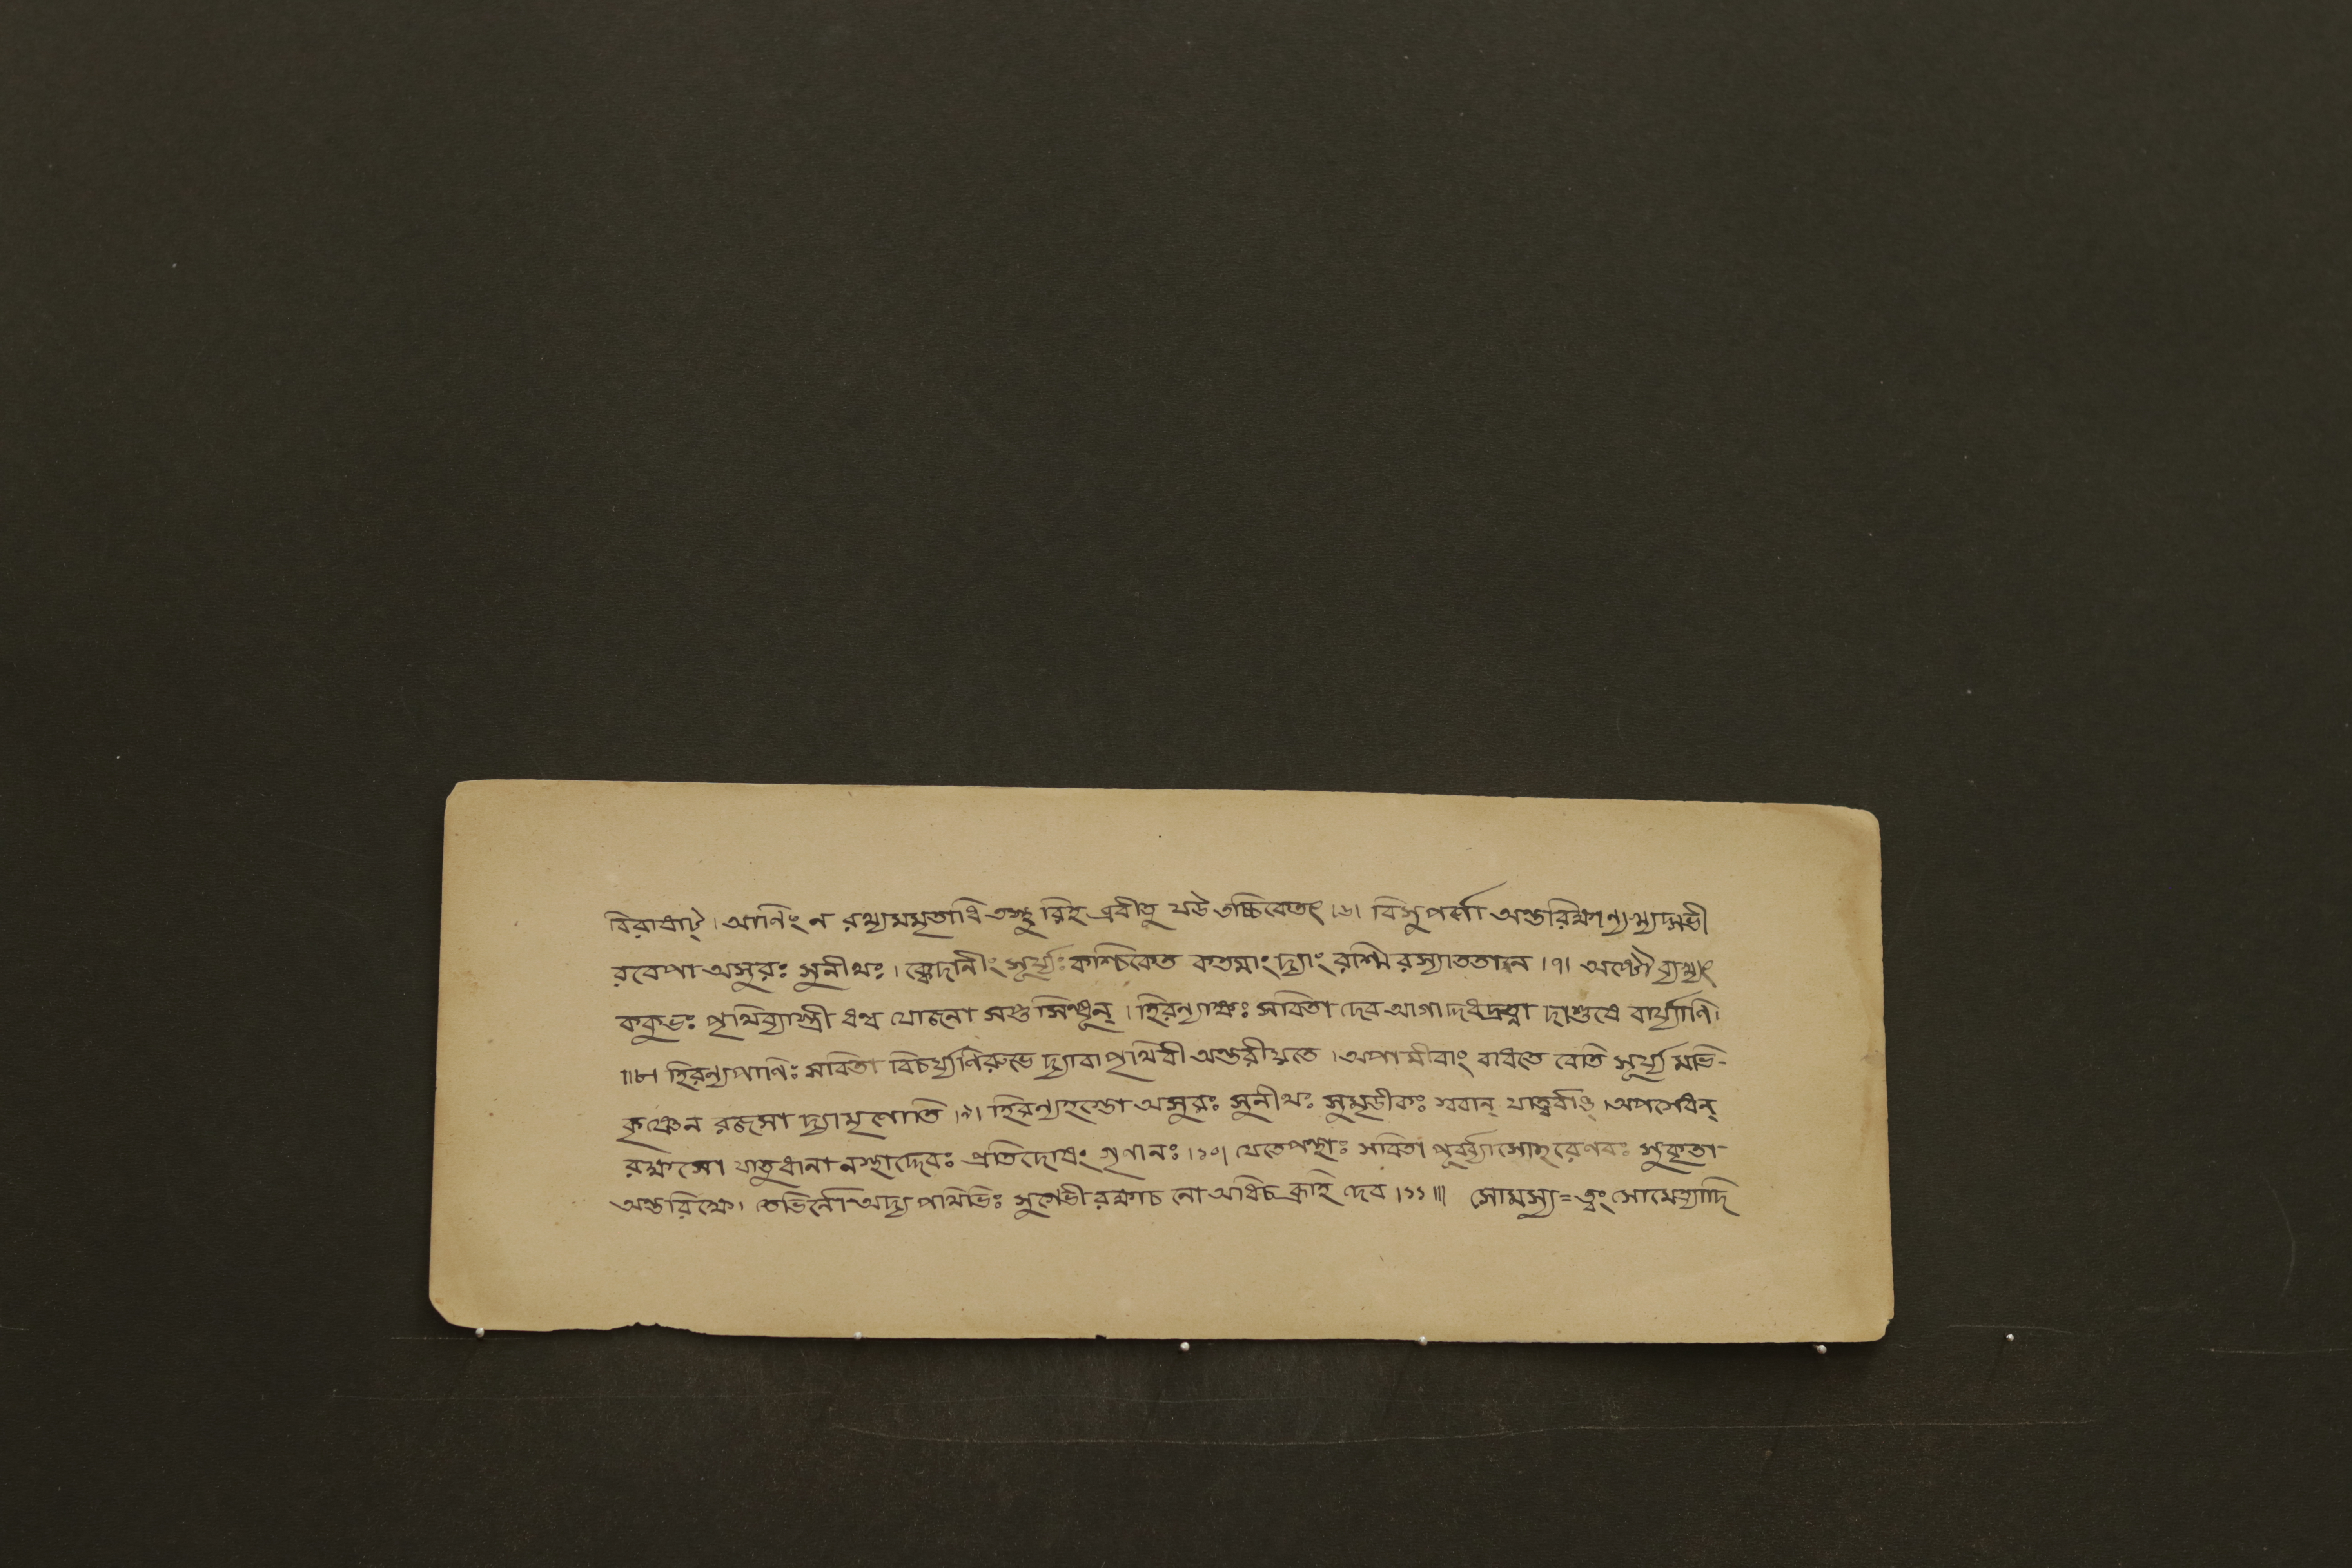 বিরাষাট্। আণিং ন রথ্যমমৃতাধি তস্থু রিহ ব্রবীতু যউ তচ্চিকেতৎ।৬। বিসুপর্ণো অন্তরিক্ষাণ্য খ্যদ্গভী
রবেপা অসুরঃ সুনীথঃ। ক্বেদানীং সূর্য্যঃ কশ্চিকেত কতমাং দ্যাং রশ্মি রস্যাততান।৭। অষ্টৌ ব্যখ্যৎ
ককুভঃ পৃথিব্যাস্ত্রী ধন্ব যোজনা সপ্ত সিন্ধূন্। হিরন্যাক্ষঃ সবিতা দেব আগা দ্দধদ্রত্না দাশুষে বার্য্যাণি।
॥৮। হিরন্যপাণিঃ সবিতা বিচর্ষ্যণিরুভে দ্যাবাপৃথিবী অন্তরীয়তে। অপামীবাং বাধতে বেতি সূর্য্য মভি-
কৃষ্ণেন রজসা দ্যামৃণোতি।৯। হিরন্যহস্তো অসুরঃ সুনীথঃ সুমৃডীকঃ স্ববান্ যাত্বর্বাঙ্। অপসেধন্
রক্ষসো যাতুধানা নস্থাদ্দেবঃ প্রতিদোষং গৃণানঃ।১০। যেতেপন্থাঃ সবিতা পূর্ব্ব্যাসোহরেণবঃ সুকৃতা-
অন্তরিক্ষে। তেভির্নো অদ্য পথিভিঃ সুগেভী রক্ষাচ নো অধিচ ব্রূহি দেব।১১॥। সোমস্য = ত্বং সোমেত্যাদি